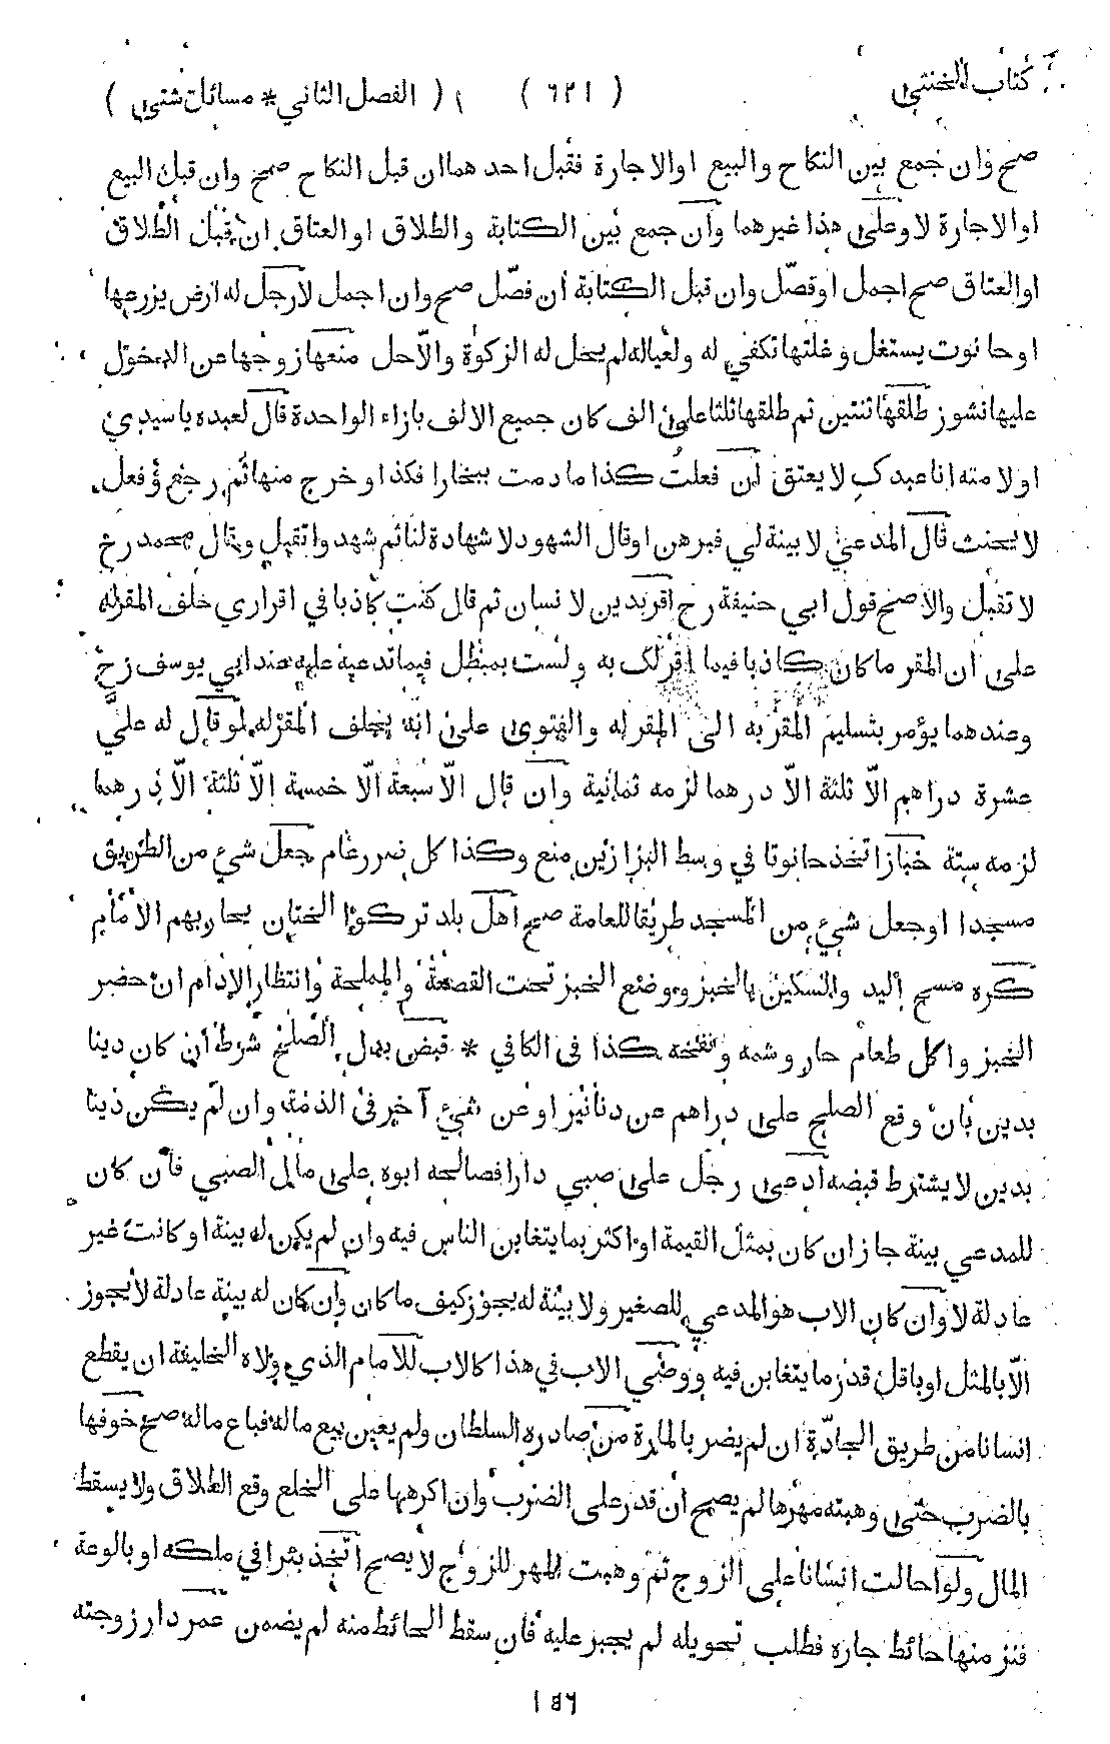 كتاب الخنثى ( ٦٢١ ) ( الفصل الثاني * مسائل شتى )
صح وان جمع بين النكاح والبيع اوالاجارة فقبل احدهما ان قبل النكاح صح وان قبل البيع
اوالاجارة لا وعلى هذا غيرهما وان جمع بين الكتابة والطلاق اوالعتاق ان قبل الطلاق
اوالعتاق صح اجمل اوفصّل وان قبل الكتابة ان فصّل صح وان اجمل لا رجل له ارض يزرعها
اوحانوت يستغل وغلتها تكفي له ولعياله لم يحل له الزكوة والّا حل منعها زوجها عن الدخول
عليها نشوز طلقها ثنتين ثم طلقها ثلثا على الف كان جميع الالف بازاء الواحدة قال لعبده ياسيدي
اولامته اناعبدك لا يعتق ان فعلت كذا ما دمت ببخارا فكذا وخرج منها ثم رجع وفعل
لا يحنث قال المدعي لا بينة لي فبرهن اوقال الشهود لا شهادة لنا ثم شهدوا تقبل وقال محمد رح
لا تقبل والاصح قول ابي حنيفة رح اقر بدين لانسان ثم قال كنت كاذبا في اقراري حلف المقرله
على ان المقر ما كان كاذبا فيما اقرلك به ولست بمبطل فيما تدعيه عليه عند ابي يوسف رح
وعندهما يؤمر بتسليم المقربه الى المقرله والفتوى على انه يحلف المقرله لوقال له عليّ
عشرة دراهم الّا ثلثة الّا درهما لزمه ثمانية وان قال الّا سبعة الّا خمسة الّا ثلثة الّا درهما
لزمه ستة خبازا تخذ حانوتا في وسط البزازين منع وكذا كل ضرر عام جعل شيء من الطريق
مسجدا اوجعل شيء من المسجد طريقا للعامة صح اهل بلد تركوا الختان يحاربهم الامام
كره مسح اليد والسكين بالخبز ووضع الخبز تحت القصعة والمملحة وانتظار الادام ان حضر
الخبز واكل طعام حار وشمه ونفخه كذا في الكافي * قبض بدل الصلح شرط ان كان دينا
بدين بان وقع الصلح على دراهم عن دنانير اوعن شيء آخر في الذمة وان لم يكن دينا
بدين لا يشترط قبضه ادعى رجل على صبي دارا فصالحه ابوه على مال الصبي فان كان
للمدعي بينة جاز ان كان بمثل القيمة اواكثر بما يتغابن الناس فيه وان لم يكن له بينة اوكانت غير
عادلة لا وان كان الاب هو المدعي للصغير ولا بينة له يجوز كيف ما كان وان كان له بينة عادلة لا يجوز
الّا بالمثل اوباقل قدر ما يتغابن فيه ووصي الاب في هذا كالاب للامام الذي ولاه الخليفة ان يقطع
انسانا من طريق الجادّة ان لم يضر بالمارة من صادره السلطان ولم يعين بيع ماله فباع ماله صح خوفها
بالضرب حتى وهبته مهرها لم يصح ان قدر على الضرب وان اكرهها على الخلع وقع الطلاق ولا يسقط
المال ولواحالت انسانا على الزوج ثم وهبت المهر للزوج لا يصح اتخذ بئرا في ملكه اوبالوعة
فنز منها حائط جاره فطلب تحويله لم يجبر عليه فان سقط الحائط منه لم يضمن عمر دار زوجته